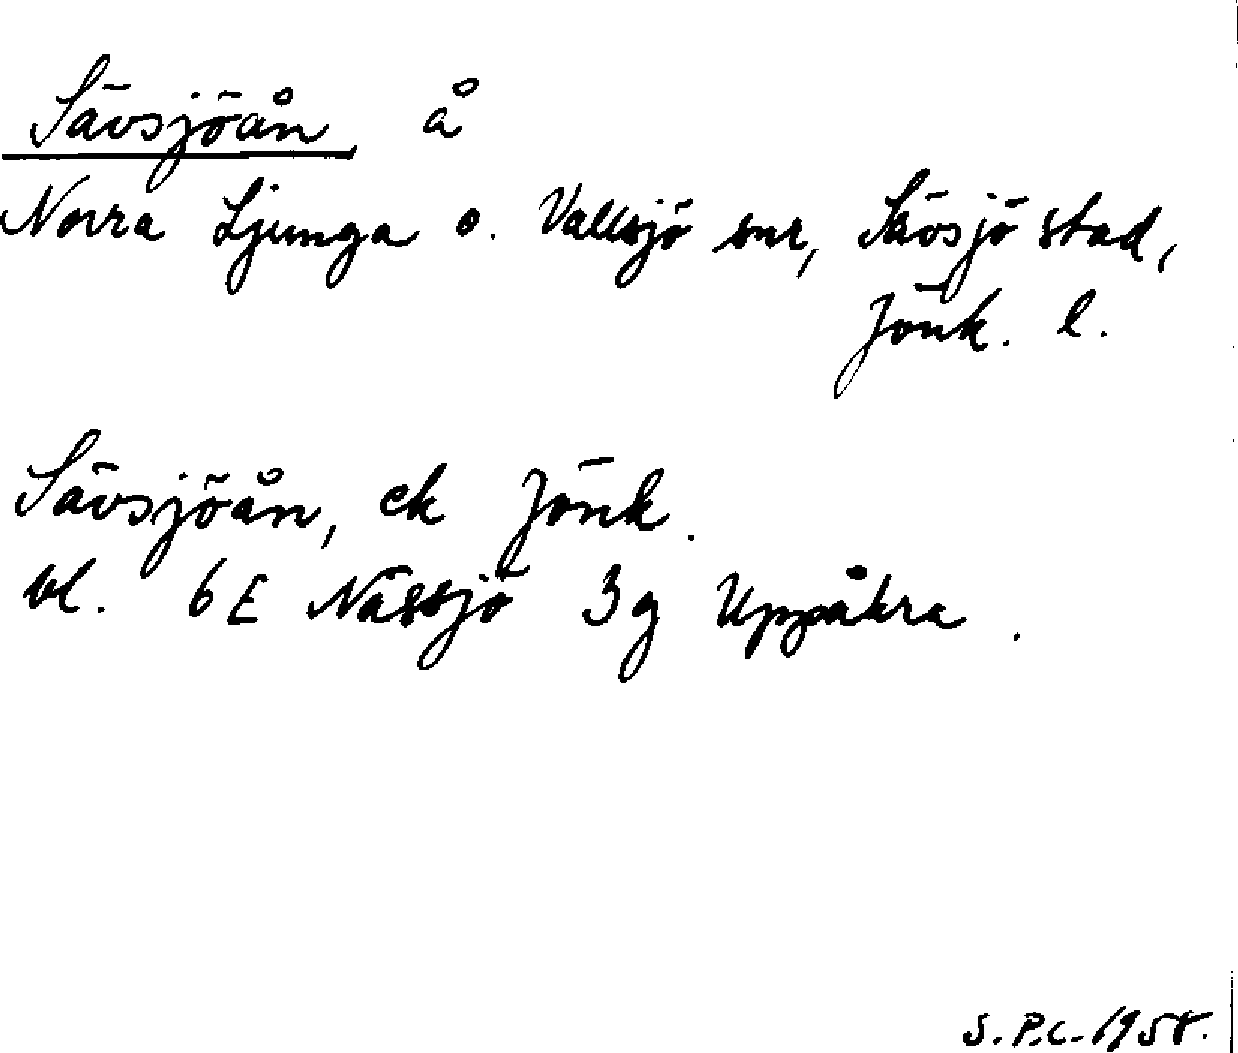 Sävsjöån å
Norra Ljunga o. Vallsjö snr, Sävsjö stad,
Jönk. l.
Sävsjöån, ek Jönk.
bl. 6E Nässjö 3g Uppåkra.
S.P.C. 1958.